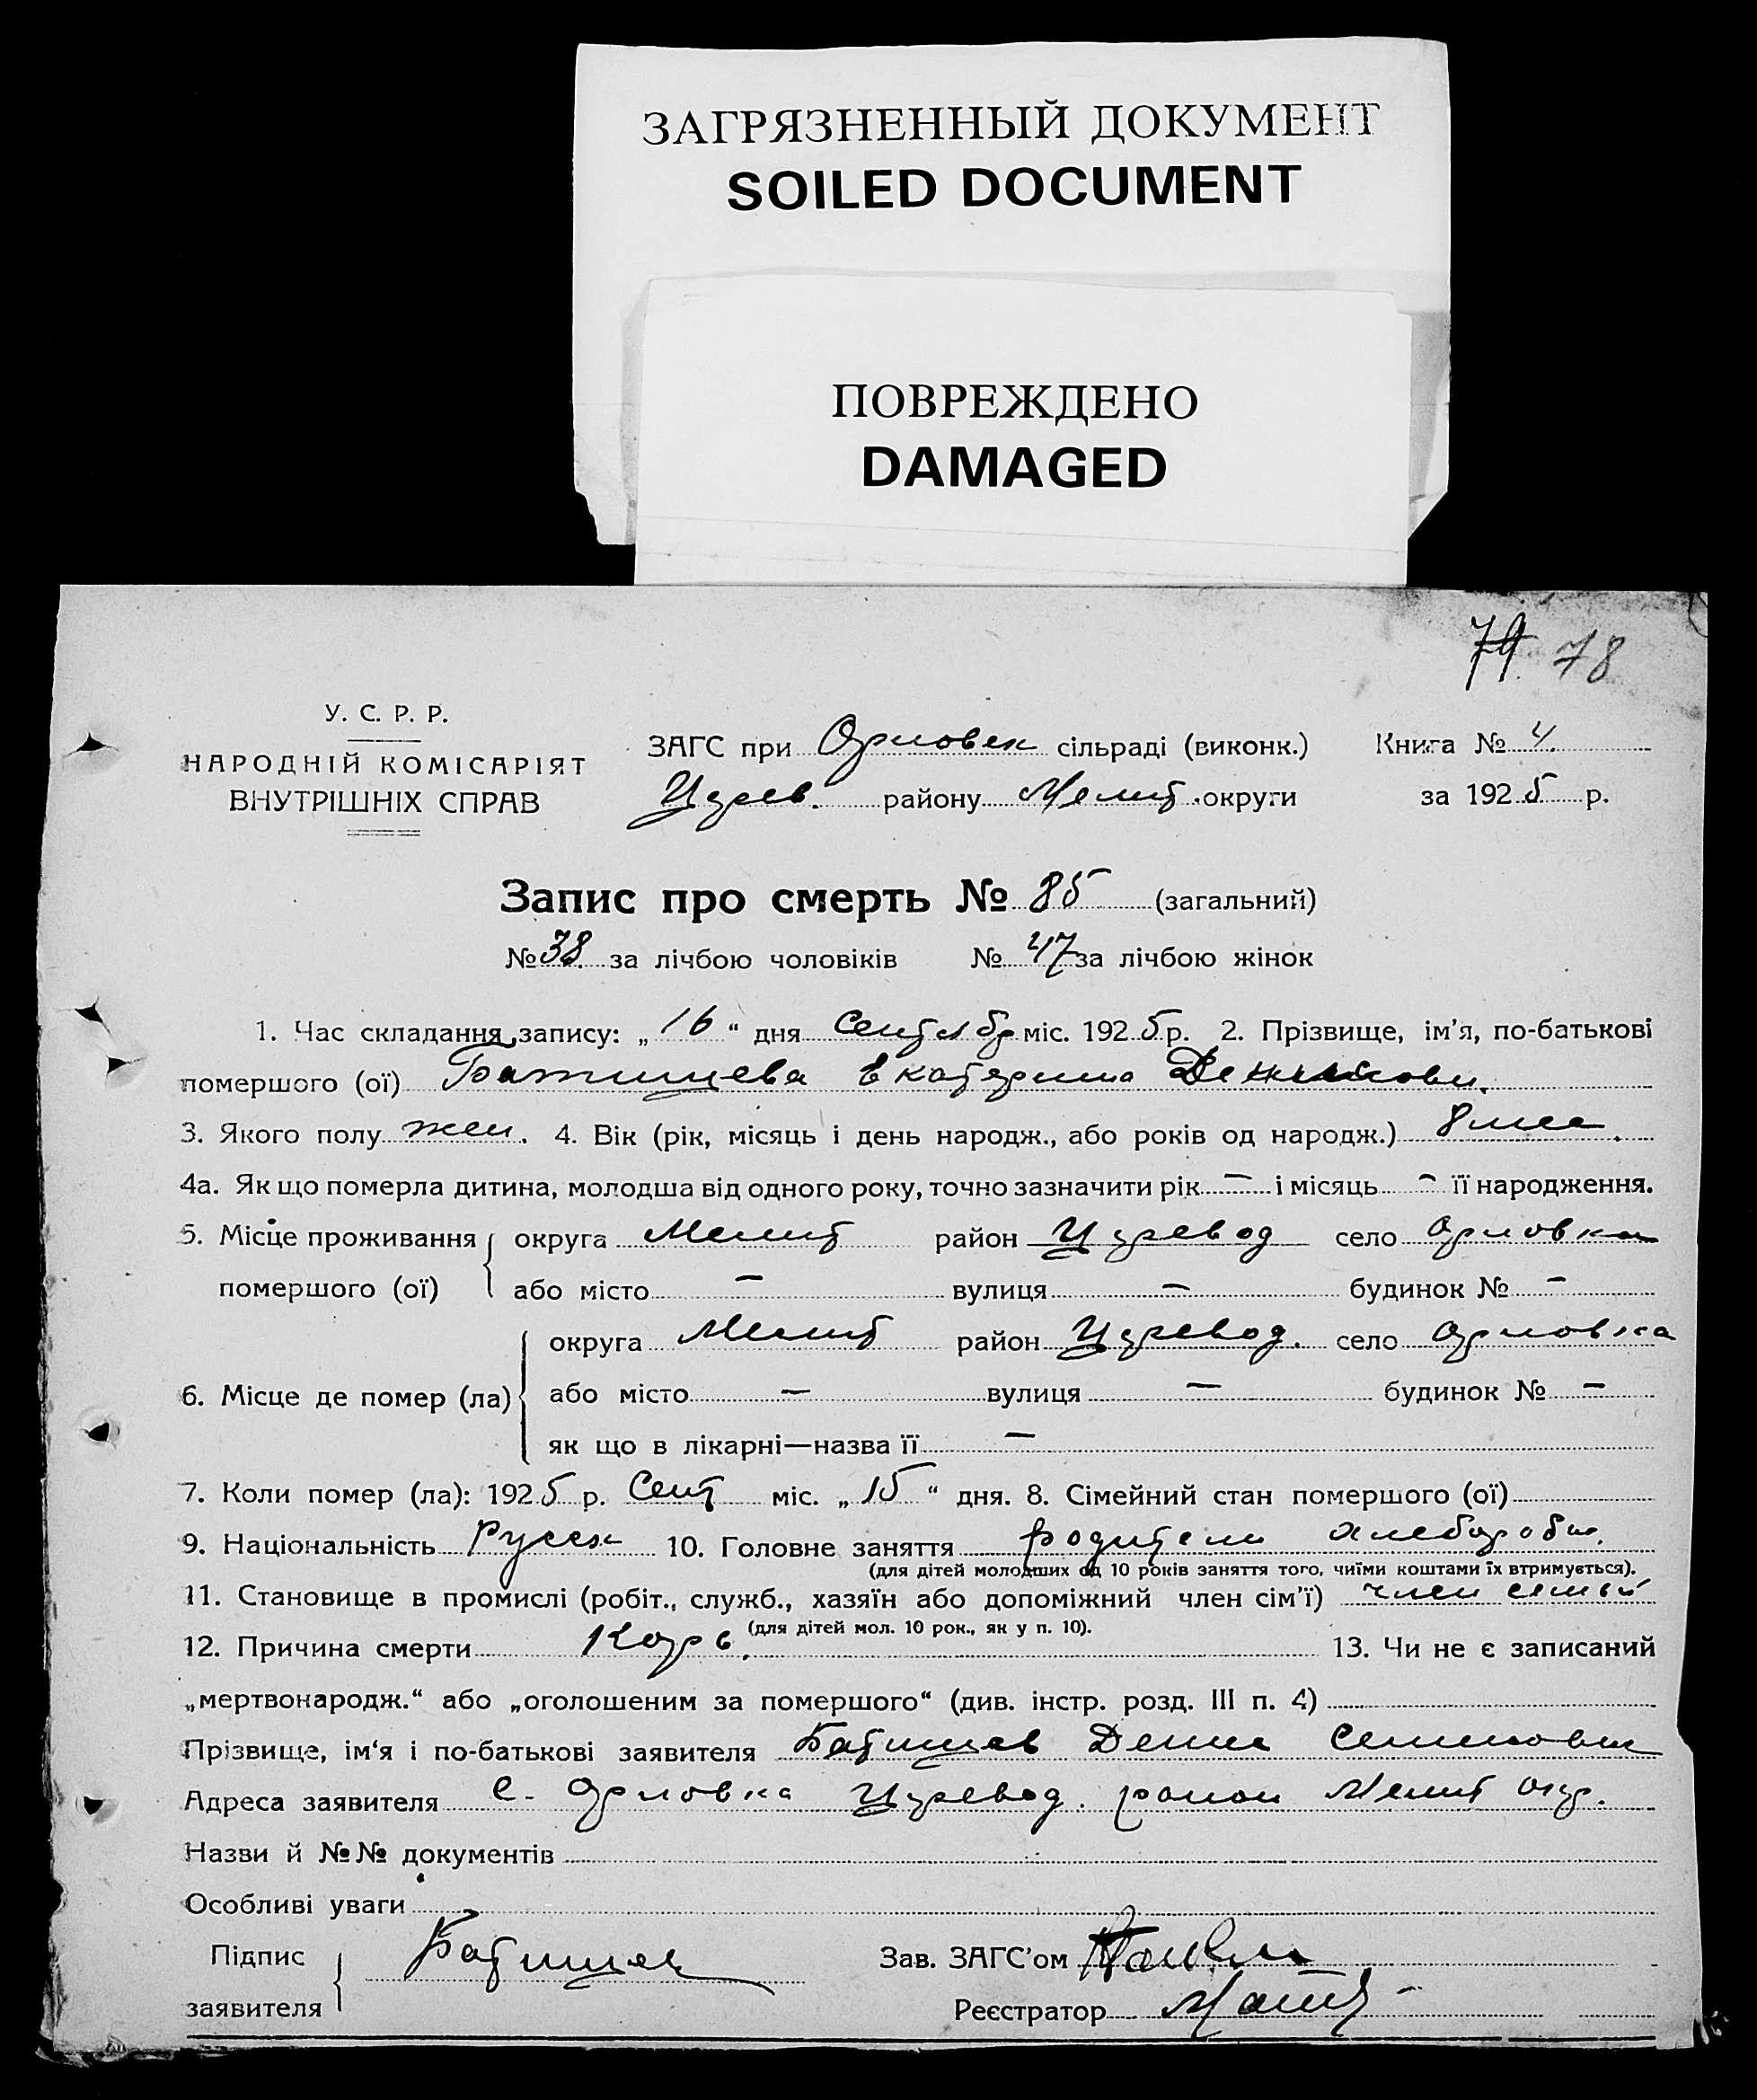 ЗАГРЯЗНЕННЫЙ ДОКУМЕНТ
SOILED DOCUMENT
ПОВРЕЖДЕНО
DAMAGED
79. 78
У. С. Р. Р.
НАРОДНІЙ КОМІСАРІЯТ
ВНУТРІШНІХ СПРАВ
ЗАГС при Орловск сільраді (виконк.)
Цурев. району Мелит. округи
Книга № 4.
за 1925 р.
Запис про смерть № 85 (загальний)
№ 38 за лічбою чоловіків № 47 за лічбою жінок
1. Час складання запису: „ 16 “ дня Сентябр міс. 1925 р. 2. Прізвище, ім'я, по-батькові
помершого (ої) Батищева Екатерина
3. Якого полу жен. 4. Вік (рік, місяць і день народж., або років од народж.) 8 мес.
4а. Як що померла дитина, молодша від одного року, точно зазначити рік — і місяць — її народження.
5. Місце проживання округа Мелит район Цуревод село Орловка
помершого (ої) або місто — вулиця — будинок № —
округа Мелит район Цуревод. село Орловка
6. Місце де помер (ла) або місто — вулиця — будинок № —
як що в лікарні—назва її —
7. Коли помер (ла): 1925 р. Сент міс. „ 15 “ дня. 8. Сімейний стан помершого (ої)
9. Національність Русск 10. Головне заняття родители хлеборобы.
(для дітей молодших од 10 років заняття того, чиїми коштами їх втримується).
11. Становище в промислі (робіт., служб., хазяїн або допоміжний член сім'ї) член семьи
(для дітей мол. 10 рок., як у п. 10).
12. Причина смерти Корь. 13. Чи не є записаний
„мертвонародж.“ або „оголошеним за помершого“ (див. інстр. розд. III п. 4)
Прізвище, ім‘я і по-батькові заявителя Батищев Денис Семенович
Адреса заявителя с. Орловка Цуревод. район Мелит окр.
Назви й №№ документів
Особливі уваги
Підпис заявителя Батищев
Зав. ЗАГС'ом
Реєстратор